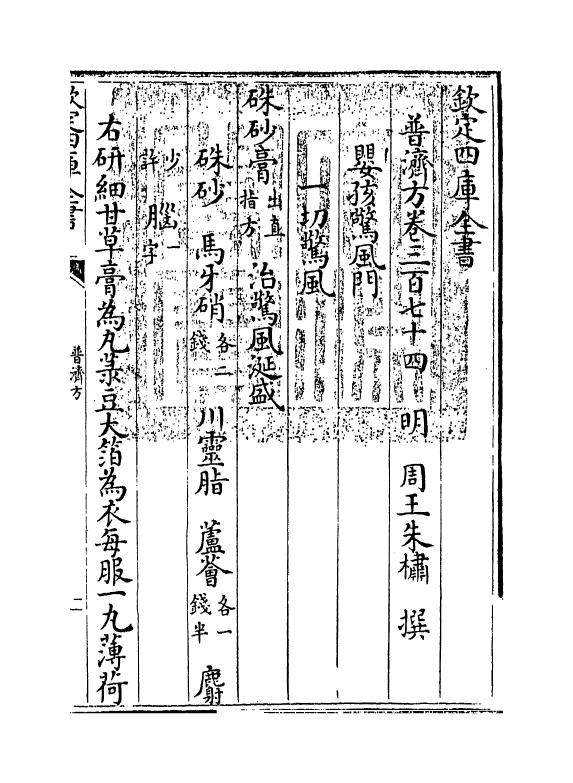 欽定四庫全書
普濟方卷三百七十四　明　周王朱橚　撰
嬰孩驚風門
一切驚風
硃砂膏出直指方　治驚風涎盛
硃砂　馬牙硝各二錢　川靈脂　蘆薈各一錢半　麝
少許　腦一字
右研細甘草膏為丸菉豆大箔為衣每服一丸薄荷
欽定四庫全書
普濟方
二